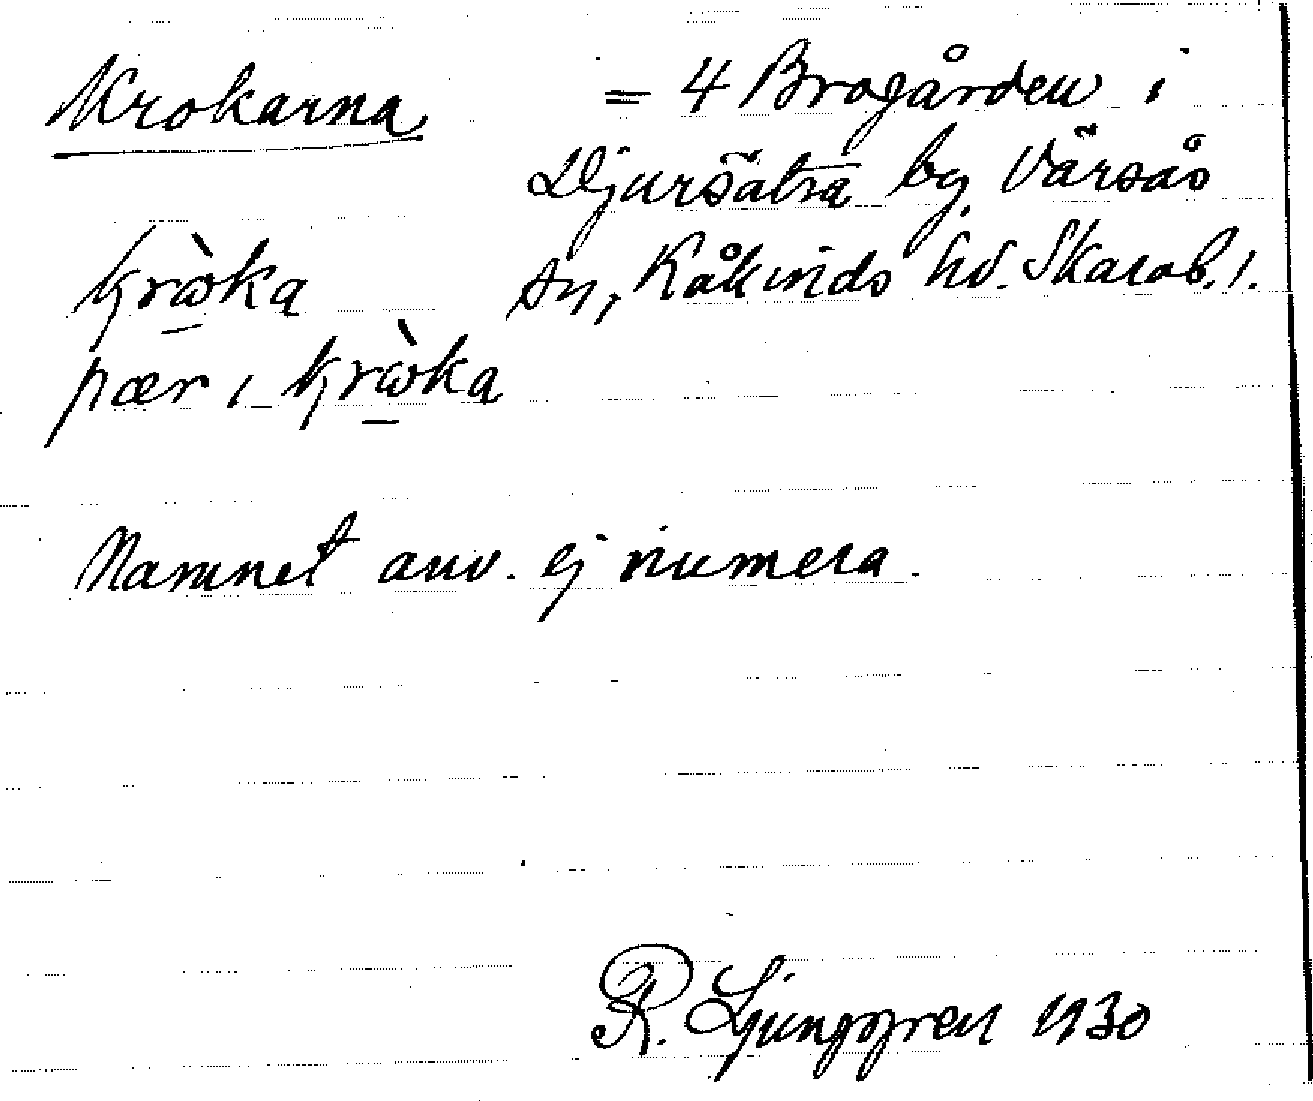 Krokarna = 4 Brogården i
Djursätra by, Värsås
sn, Kåkinds hd. Skarab. l.
krὼka
pær i krὼka
Namnet anv. ej numera.
R. Ljunggren 1930